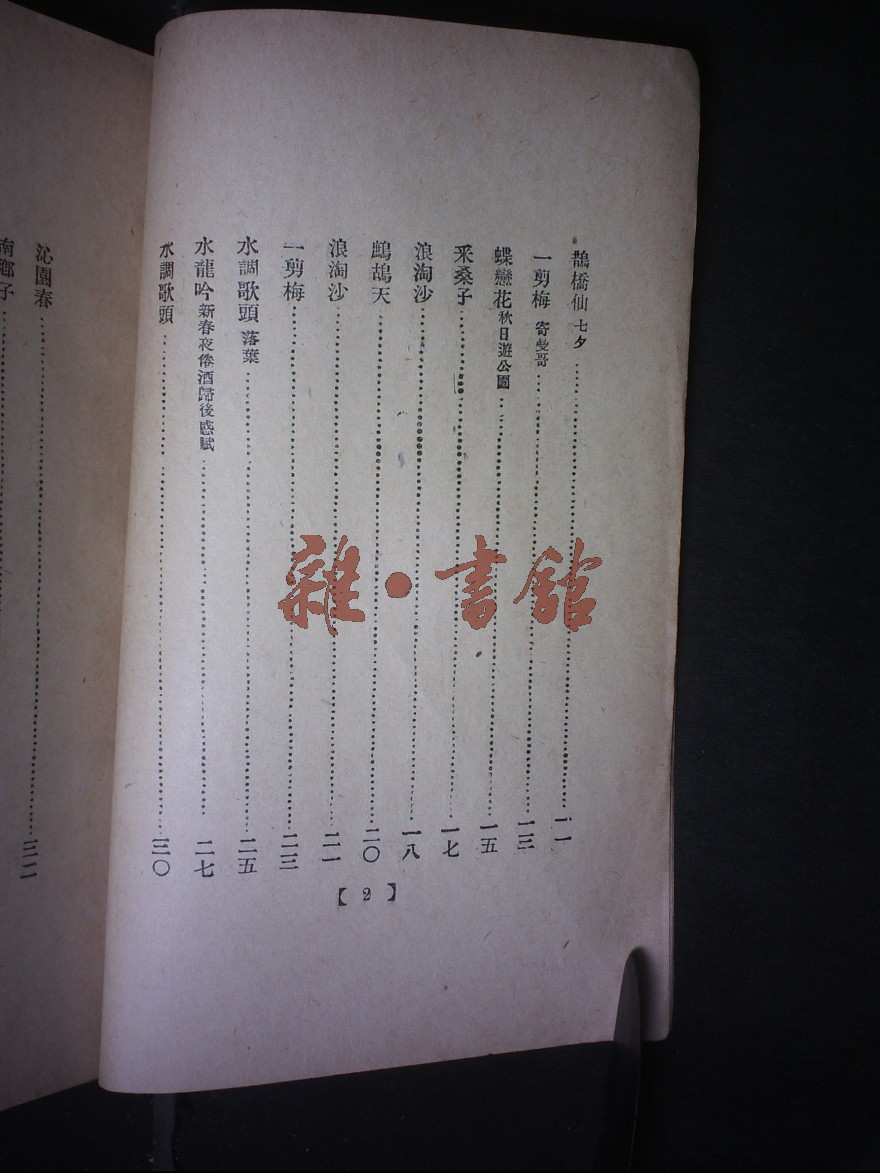 鵲橋仙 七夕……一一
一剪梅 寄斐哥……一三
蝶戀花 秋日遊公園……一五
采桑子……一七
浪淘沙……一八
鷓鴣天……二〇
浪淘沙……二一
一剪梅……二三
水調歌頭 落葉……二五
水龍吟 新春夜倦酒歸後感賦……二七
水調歌頭……三〇
【2】
沁園春……三二
南鄉子……
雜·書館